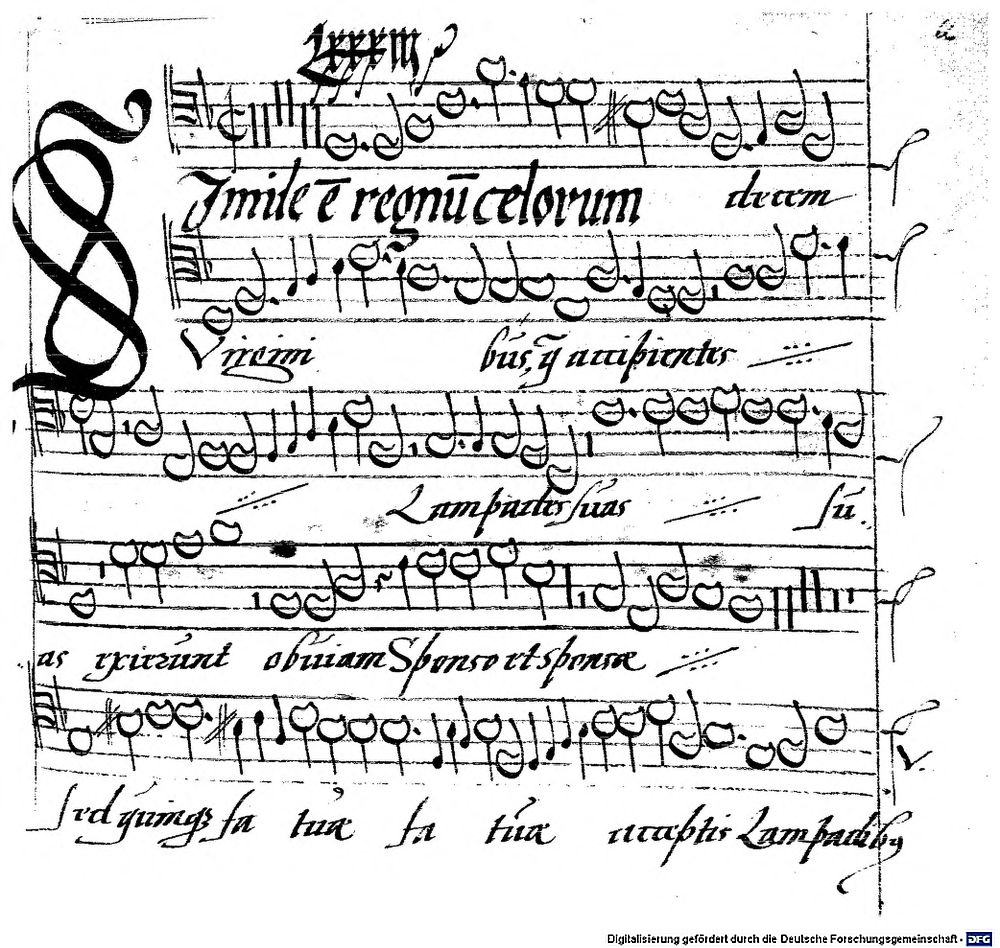 LXXXIII
SImile ē regnū celorum decem
Virgini bus, q̄ accipientes
Lampades suas su
as exierunt obuiam Sponso et sponsæ
sed quinqꝫ fa tuæ fa tuæ acceptis Lampadibꝯ
V.
Digitalisierung gefördert durch die Deutsche Forschungsgemeinschaft - DFG